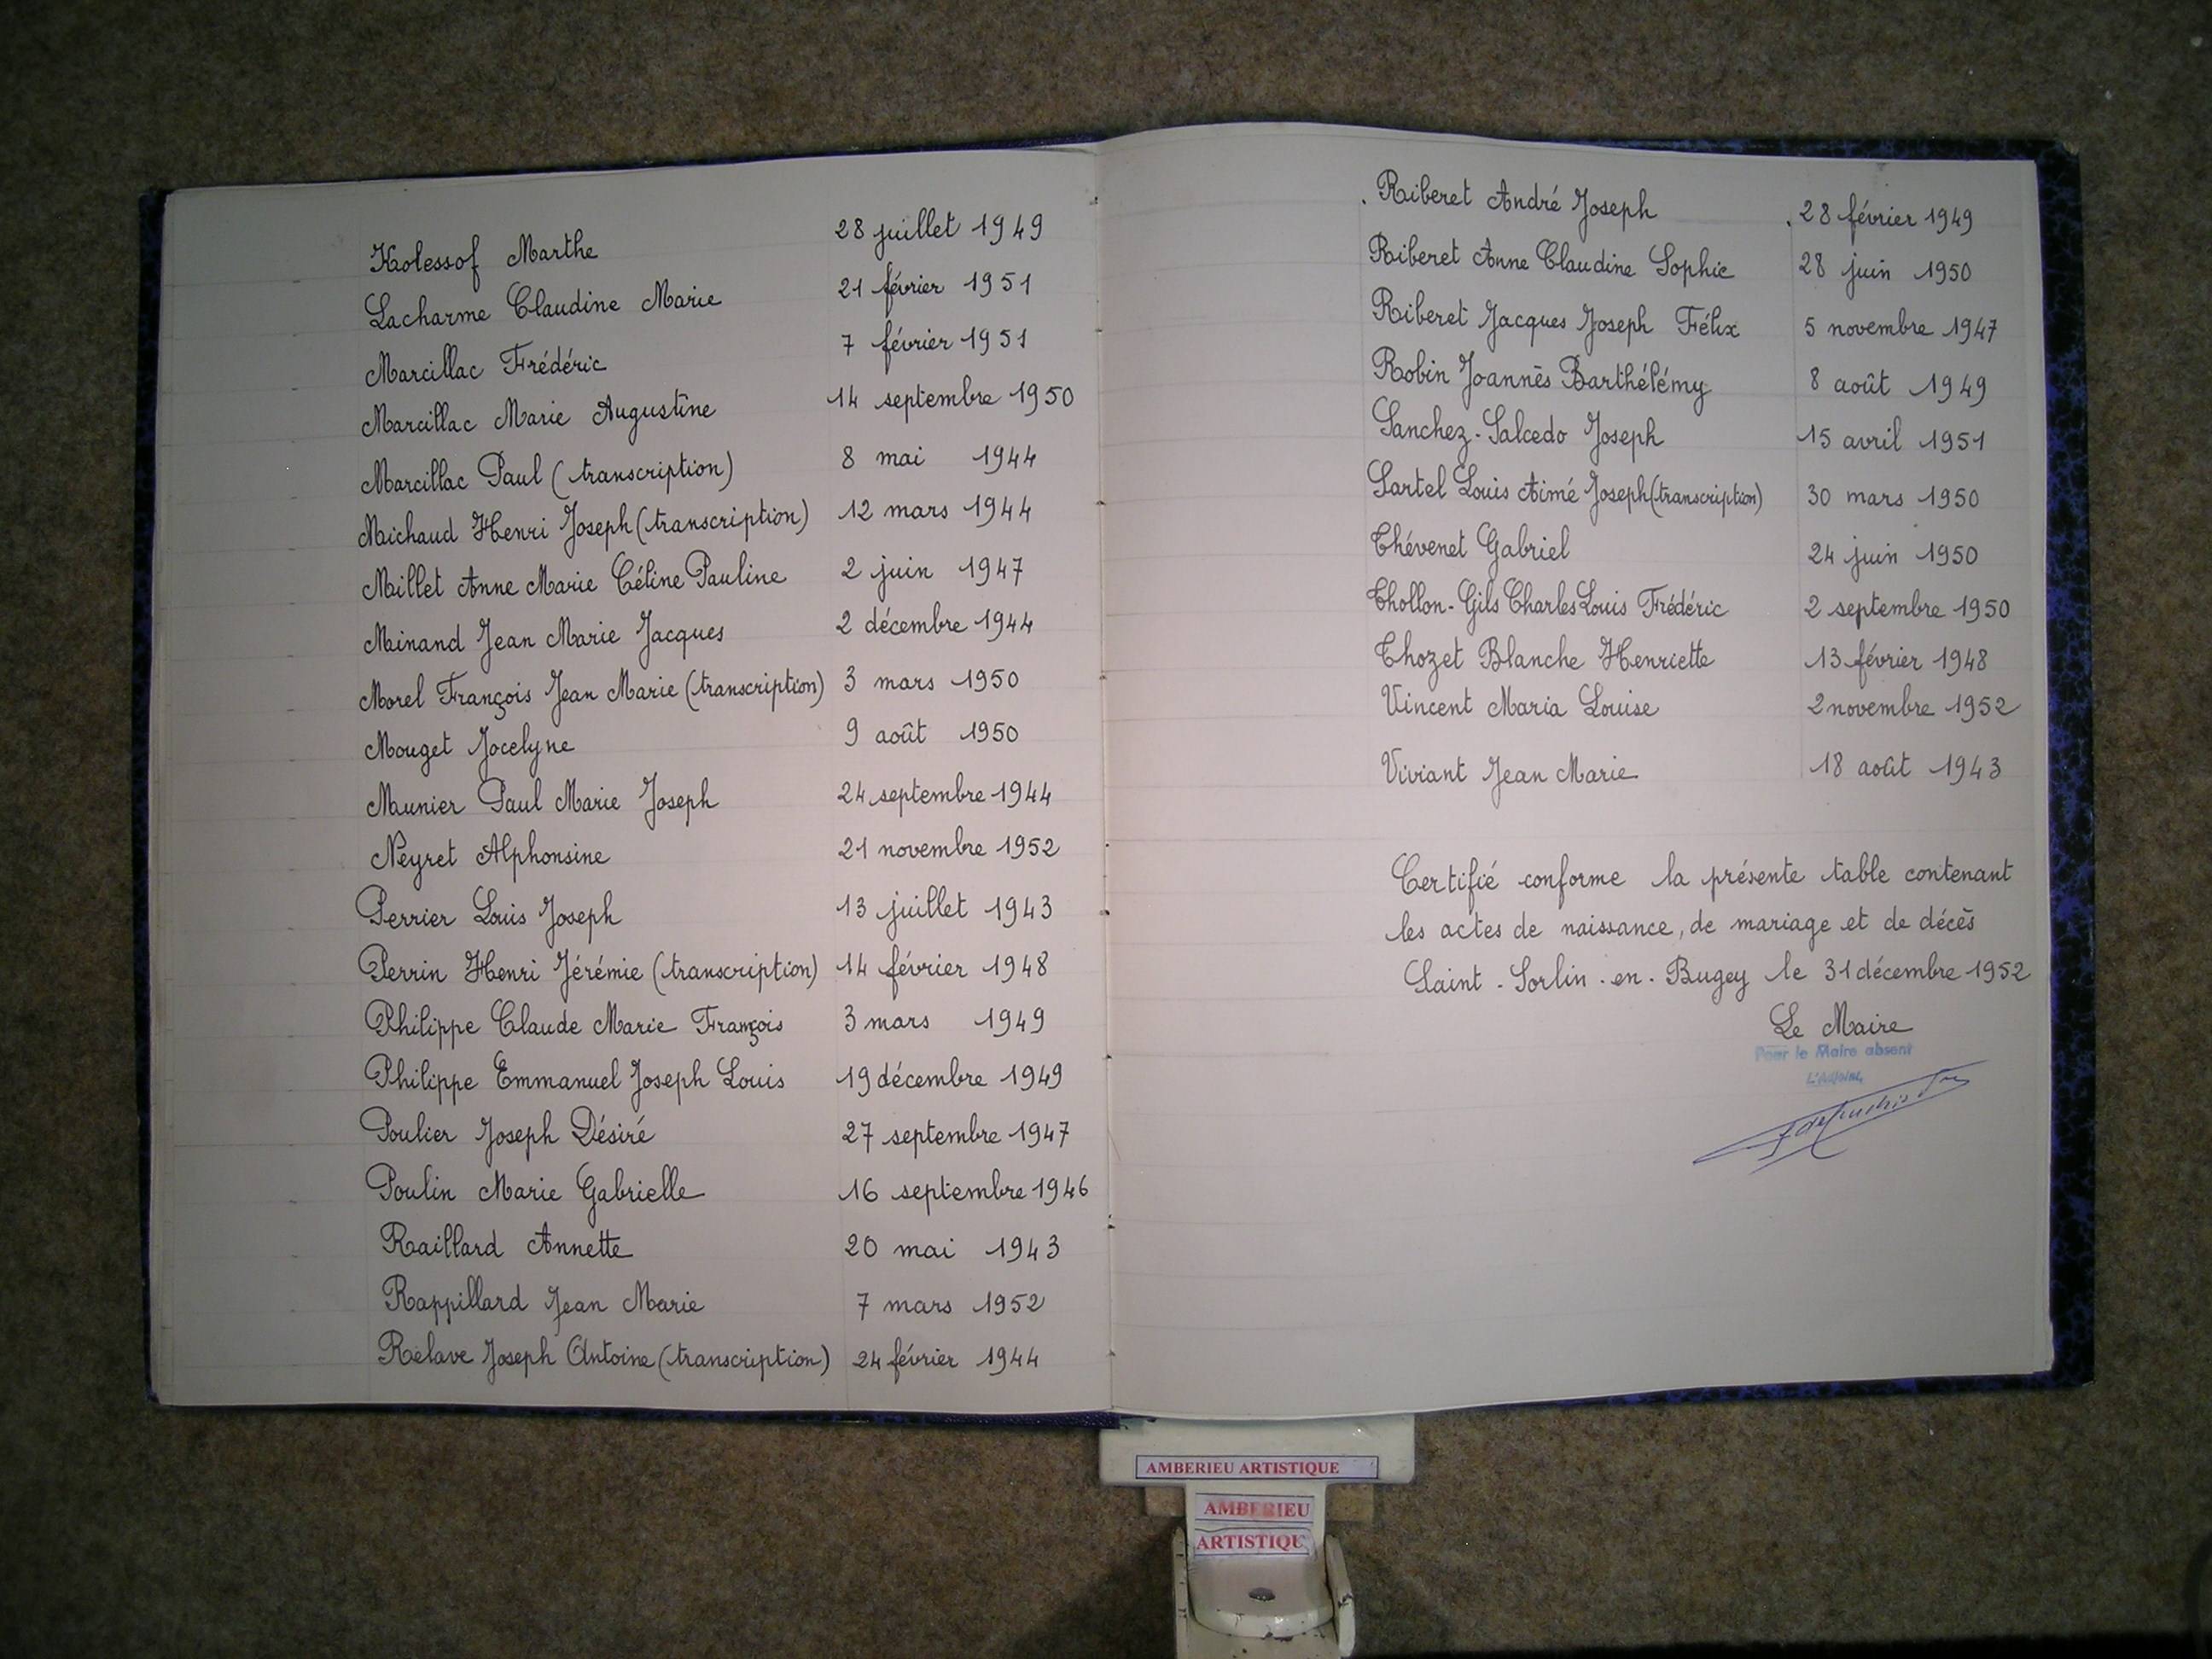 Kolessof Marthe 28 juillet 1949
Lacharme Claudine Marie 21 février 1951
Marcillac Frédéric 7 février 1951
Marcillac Marie Augustine 14 septembre 1950
Marcillac Paul (transcription) 8 mai 1944
Michaud Henri Joseph (transcription) 12 mars 1944
Millet Anne Marie Céline Pauline 2 juin 1947
Minand Jean Marie Jacques 2 décembre 1944
Morel François Jean Marie (transcription) 3 mars 1950
Mouget Jocelyne 9 août 1950
Munier Paul Marie Joseph 24 septembre 1944
Neyret Alphonsine 21 novembre 1952
Perrier Louis Joseph 13 juillet 1943
Perrin Henri Jérémie (transcription) 14 février 1948
Philippe Claude Marie François 3 mars 1949
Philippe Emmanuel Joseph Louis 19 décembre 1949
Poulier Joseph Désiré 27 septembre 1947
Poulin Marie Gabrielle 16 septembre 1946
Raillard Annette 20 mai 1943
Rappillard Jean Marie 7 mars 1952
Relave Joseph Antoine (transcription) 24 février 1944
Riberet André Joseph 28 février 1949
Riberet Anne Claudine Sophie 28 juin 1950
Riberet Jacques Joseph Félix 5 novembre 1947
Robin Joannès Barthélémy 8 août 1949
Sanchez-Salcedo Joseph 15 avril 1951
Sartel Louis Aimé Joseph (transcription) 30 mars 1950
Thévenet Gabriel 24 juin 1950
Thollon-Gils Charles Louis Frédéric 2 septembre 1950
Thozet Blanche Henriette 13 février 1948
Vincent Maria Louise 2 novembre 1952
Viviant Jean Marie 18 août 1943
Certifié conforme la présente table contenant
les actes de naissance, de mariage et de décès
Saint-Sorlin-en-Bugey le 31 décembre 1952
Le Maire
Pour le Maire absent
L'Adjoint,
AMBERIEU ARTISTIQUE
AMBERIEU
ARTISTIQU